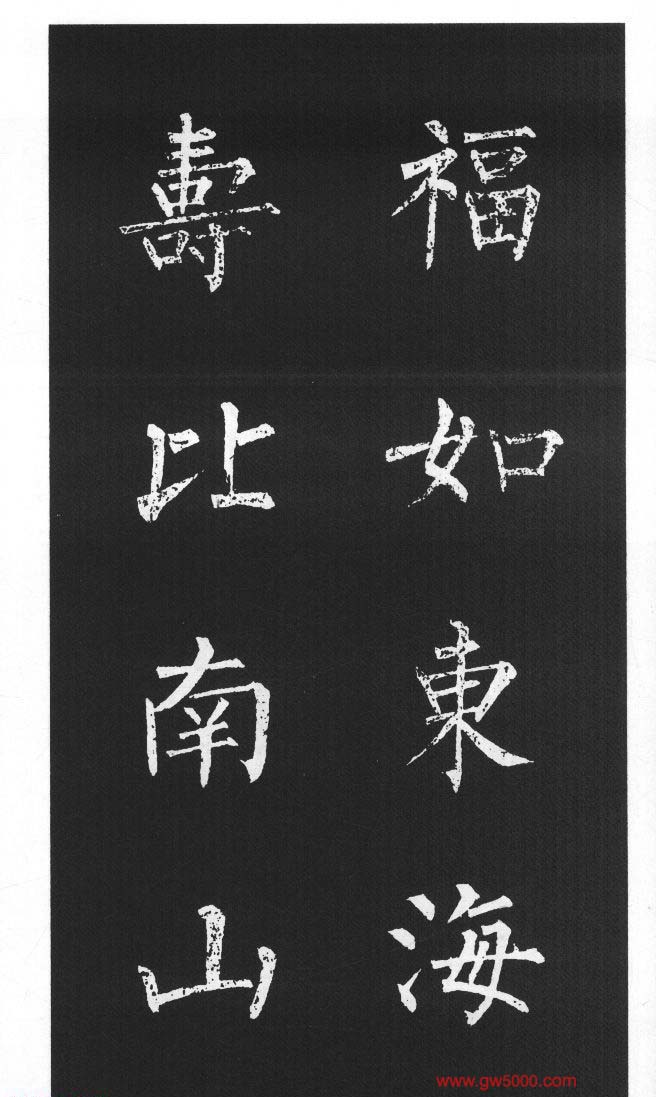 福如東海
壽比南山
www.gw5000.com